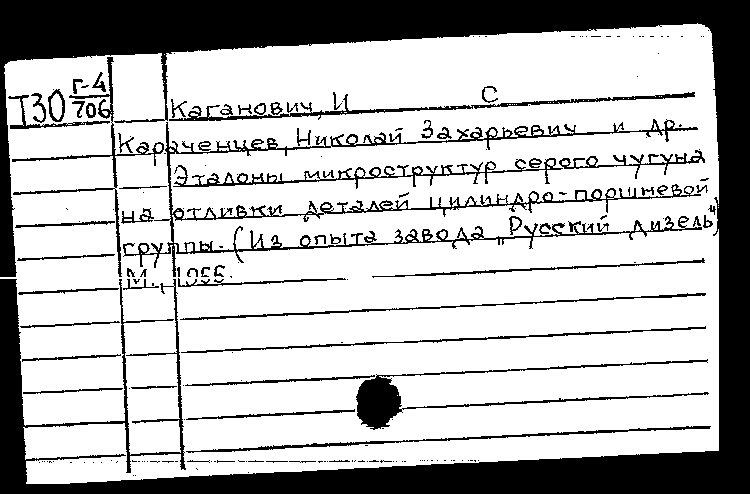 Г-4
Т30 706
Каганович, И С
Караченцев, Николай Захарьевич и др.
Эталоны микроструктур серого чугуна
на отливки деталей цилиндро-поршневой
группы. (Из опыта завода „Русский дизель")
М., 1955.